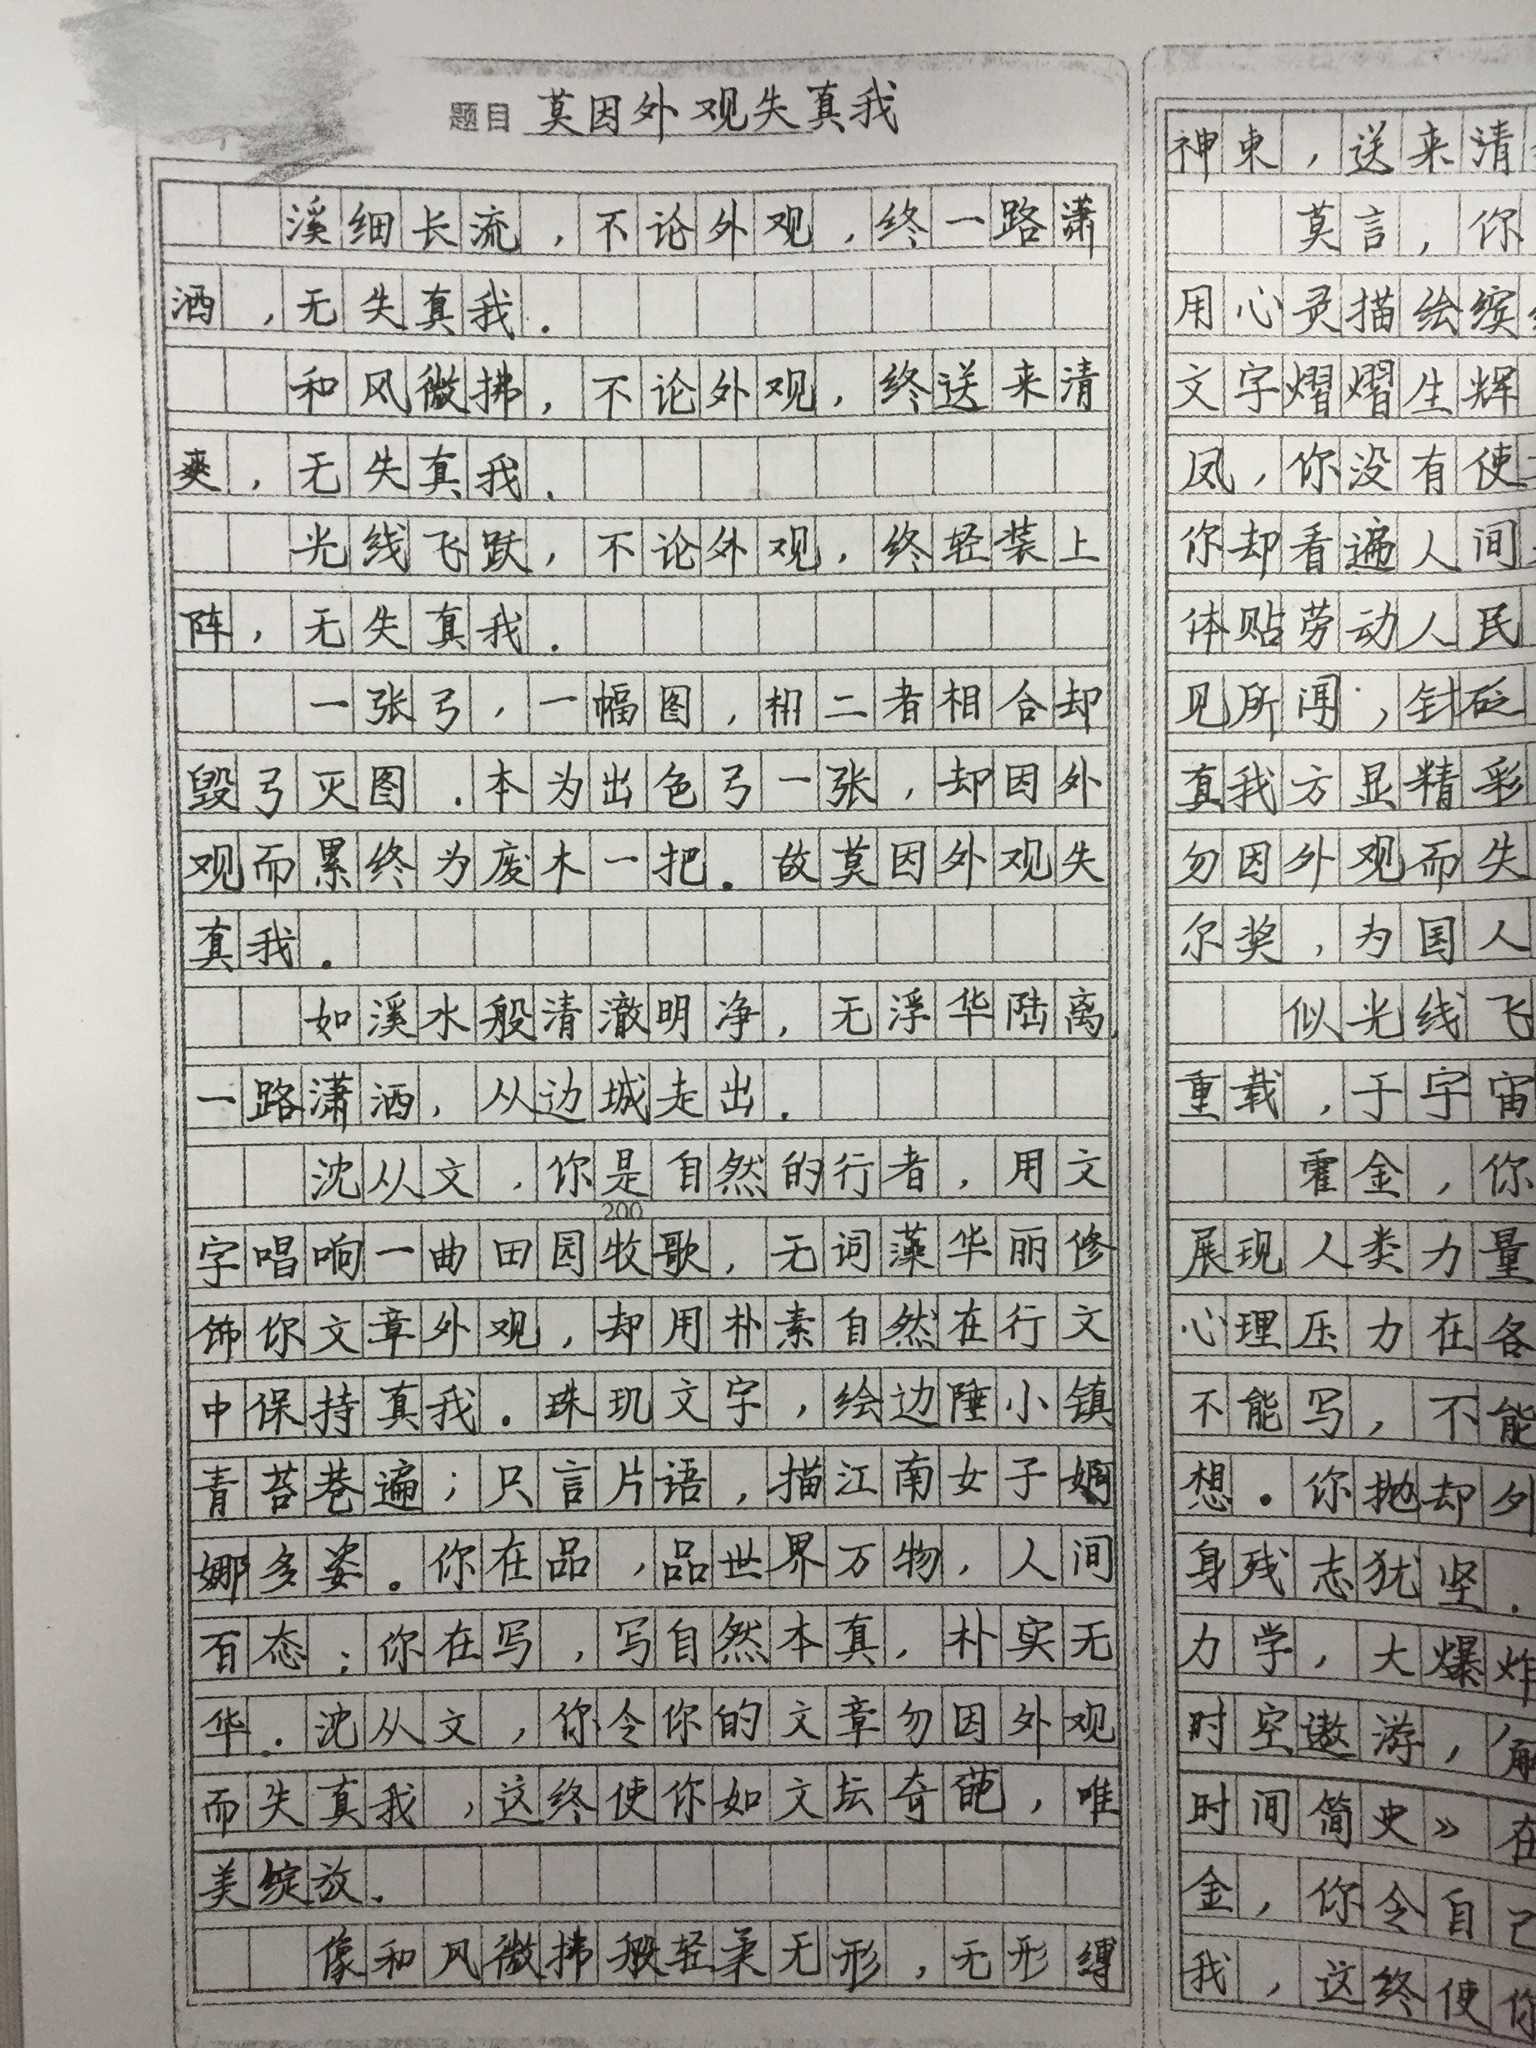 题目 莫因外观失真我
溪细长流，不论外观，终一路潇
洒，无失真我．
和风微拂，不论外观，终送来清
爽，无失真我．
光线飞跃，不论外观，终轻装上
阵，无失真我．
一张弓，一幅图，二者相合却
毁弓灭图．本为出色弓一张，却因外
观而累终为废木一把．故莫因外观失
真我．
如溪水般清澈明净，无浮华陆离，
一路潇洒，从边城走出．
沈从文，你是自然的行者，用文
200
字唱响一曲田园牧歌，无词藻华丽修
饰你文章外观，却用朴素自然在行文
中保持真我．珠玑文字，绘边陲小镇
青苔巷遍；只言片语，描江南女子婀
娜多姿．你在品，品世界万物，人间
百态；你在写，写自然本真，朴实无
华．沈从文，你令你的文章勿因外观
而失真我，这终使你如文坛奇葩，唯
美绽放．
像和风微拂般轻柔无形，无形缚
神束，送来清
莫言，你
用心灵描绘缤
文字熠熠生辉
凤，你没有使
你却看遍人间
体贴劳动人民
见所闻，针砭
真我方显精彩
勿因外观而失
尔奖，为国人
似光线飞
重载，于宇宙
霍金，你
展现人类力量
心理压力在各
不能写，不能
想．你抛却外
身残志犹坚．
力学，大爆炸
时空遨游，解
时间简史》在
金，你令自己
我，这终使你